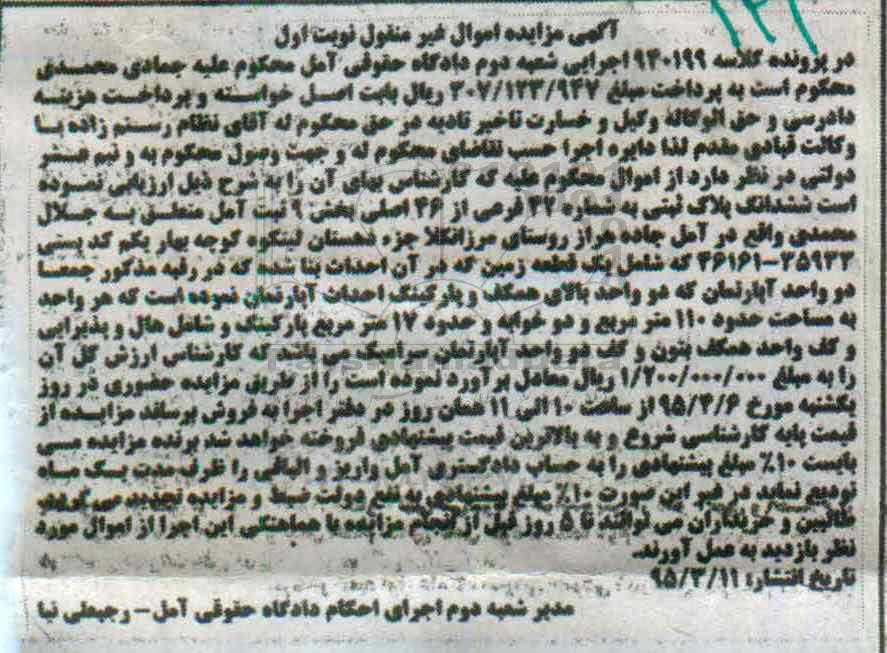 ۱۲۱
آگهی مزایده اموال غیر منقول نوبت اول
در پرونده کلاسه ۹۴۰۱۹۹ اجرایی شعبه دوم دادگاه حقوقی آمل محکوم علیه جمادی محمدی
محکوم است به پرداخت مبلغ ۳۰۷/۱۲۳/۹۴۷ ریال بابت اصل خواسته و پرداخت هزینه
دادرسی و حق الوکاله وکیل و خسارت تاخیر تادیه در حق محکوم له آقای نظام رستم زاده با
وکالت قبادی مقدم لذا دایره اجرا حسب تقاضای محکوم له و جهت وصول محکوم به و نیم عشر
دولتی در نظر دارد از اموال محکوم علیه که کارشناس بهای آن را به شرح ذیل ارزیابی نموده
است ششدانگ پلاک ثبتی به شماره ۴۲ فرعی از ۴۶ اصلی بخش ۹ ثبت آمل متعلق به جلال
محمدی واقع در آمل جاده هراز روستای مرزانکلا جزء دهستان لیتکوه کوچه بهار یکم کد پستی
۴۶۱۶۱-۳۵۹۳۳ که شامل یک قطعه زمین که در آن احداث بنا شده که در رقبه مذکور جمعا
دو واحد آپارتمان که دو واحد بالای همکف و پارکینگ احداث آپارتمان نموده است که هر واحد
به مساحت حدود ۱۱۰ متر مربع و دو خوابه و حدود ۱۷ متر مربع پارکینگ و شامل هال و پذیرایی
و کف واحد همکف بتون و کف دو واحد آپارتمان سرامیک می باشد که کارشناس ارزش کل آن
را به مبلغ ۱/۲۰۰/۰۰۰/۰۰۰ ریال معادل برآورد نموده است را از طریق مزایده حضوری در روز
یکشنبه مورخ ۹۵/۴/۶ از ساعت ۱۰ الی ۱۱ همان روز در دفتر اجرا به فروش برساند مزایده از
قیمت پایه کارشناسی شروع و به بالاترین قیمت پیشنهادی فروخته خواهد شد برنده مزایده می
بایست ۱۰٪ مبلغ پیشنهادی را به حساب دادگستری آمل واریز و الباقی را ظرف مدت یک ماه
تودیع نماید در غیر این صورت ۱۰٪ مبلغ پیشنهادی به نفع دولت ضبط و مزایده تجدید می گردد.
طالبین و خریداران می توانند تا ۵ روز قبل از انجام مزایده با هماهنگی این اجرا از اموال مورد
نظر بازدید به عمل آورند.
تاریخ انتشار: ۹۵/۳/۱۱
مدیر شعبه دوم اجرای احکام دادگاه حقوقی آمل - رجبعلی نیا